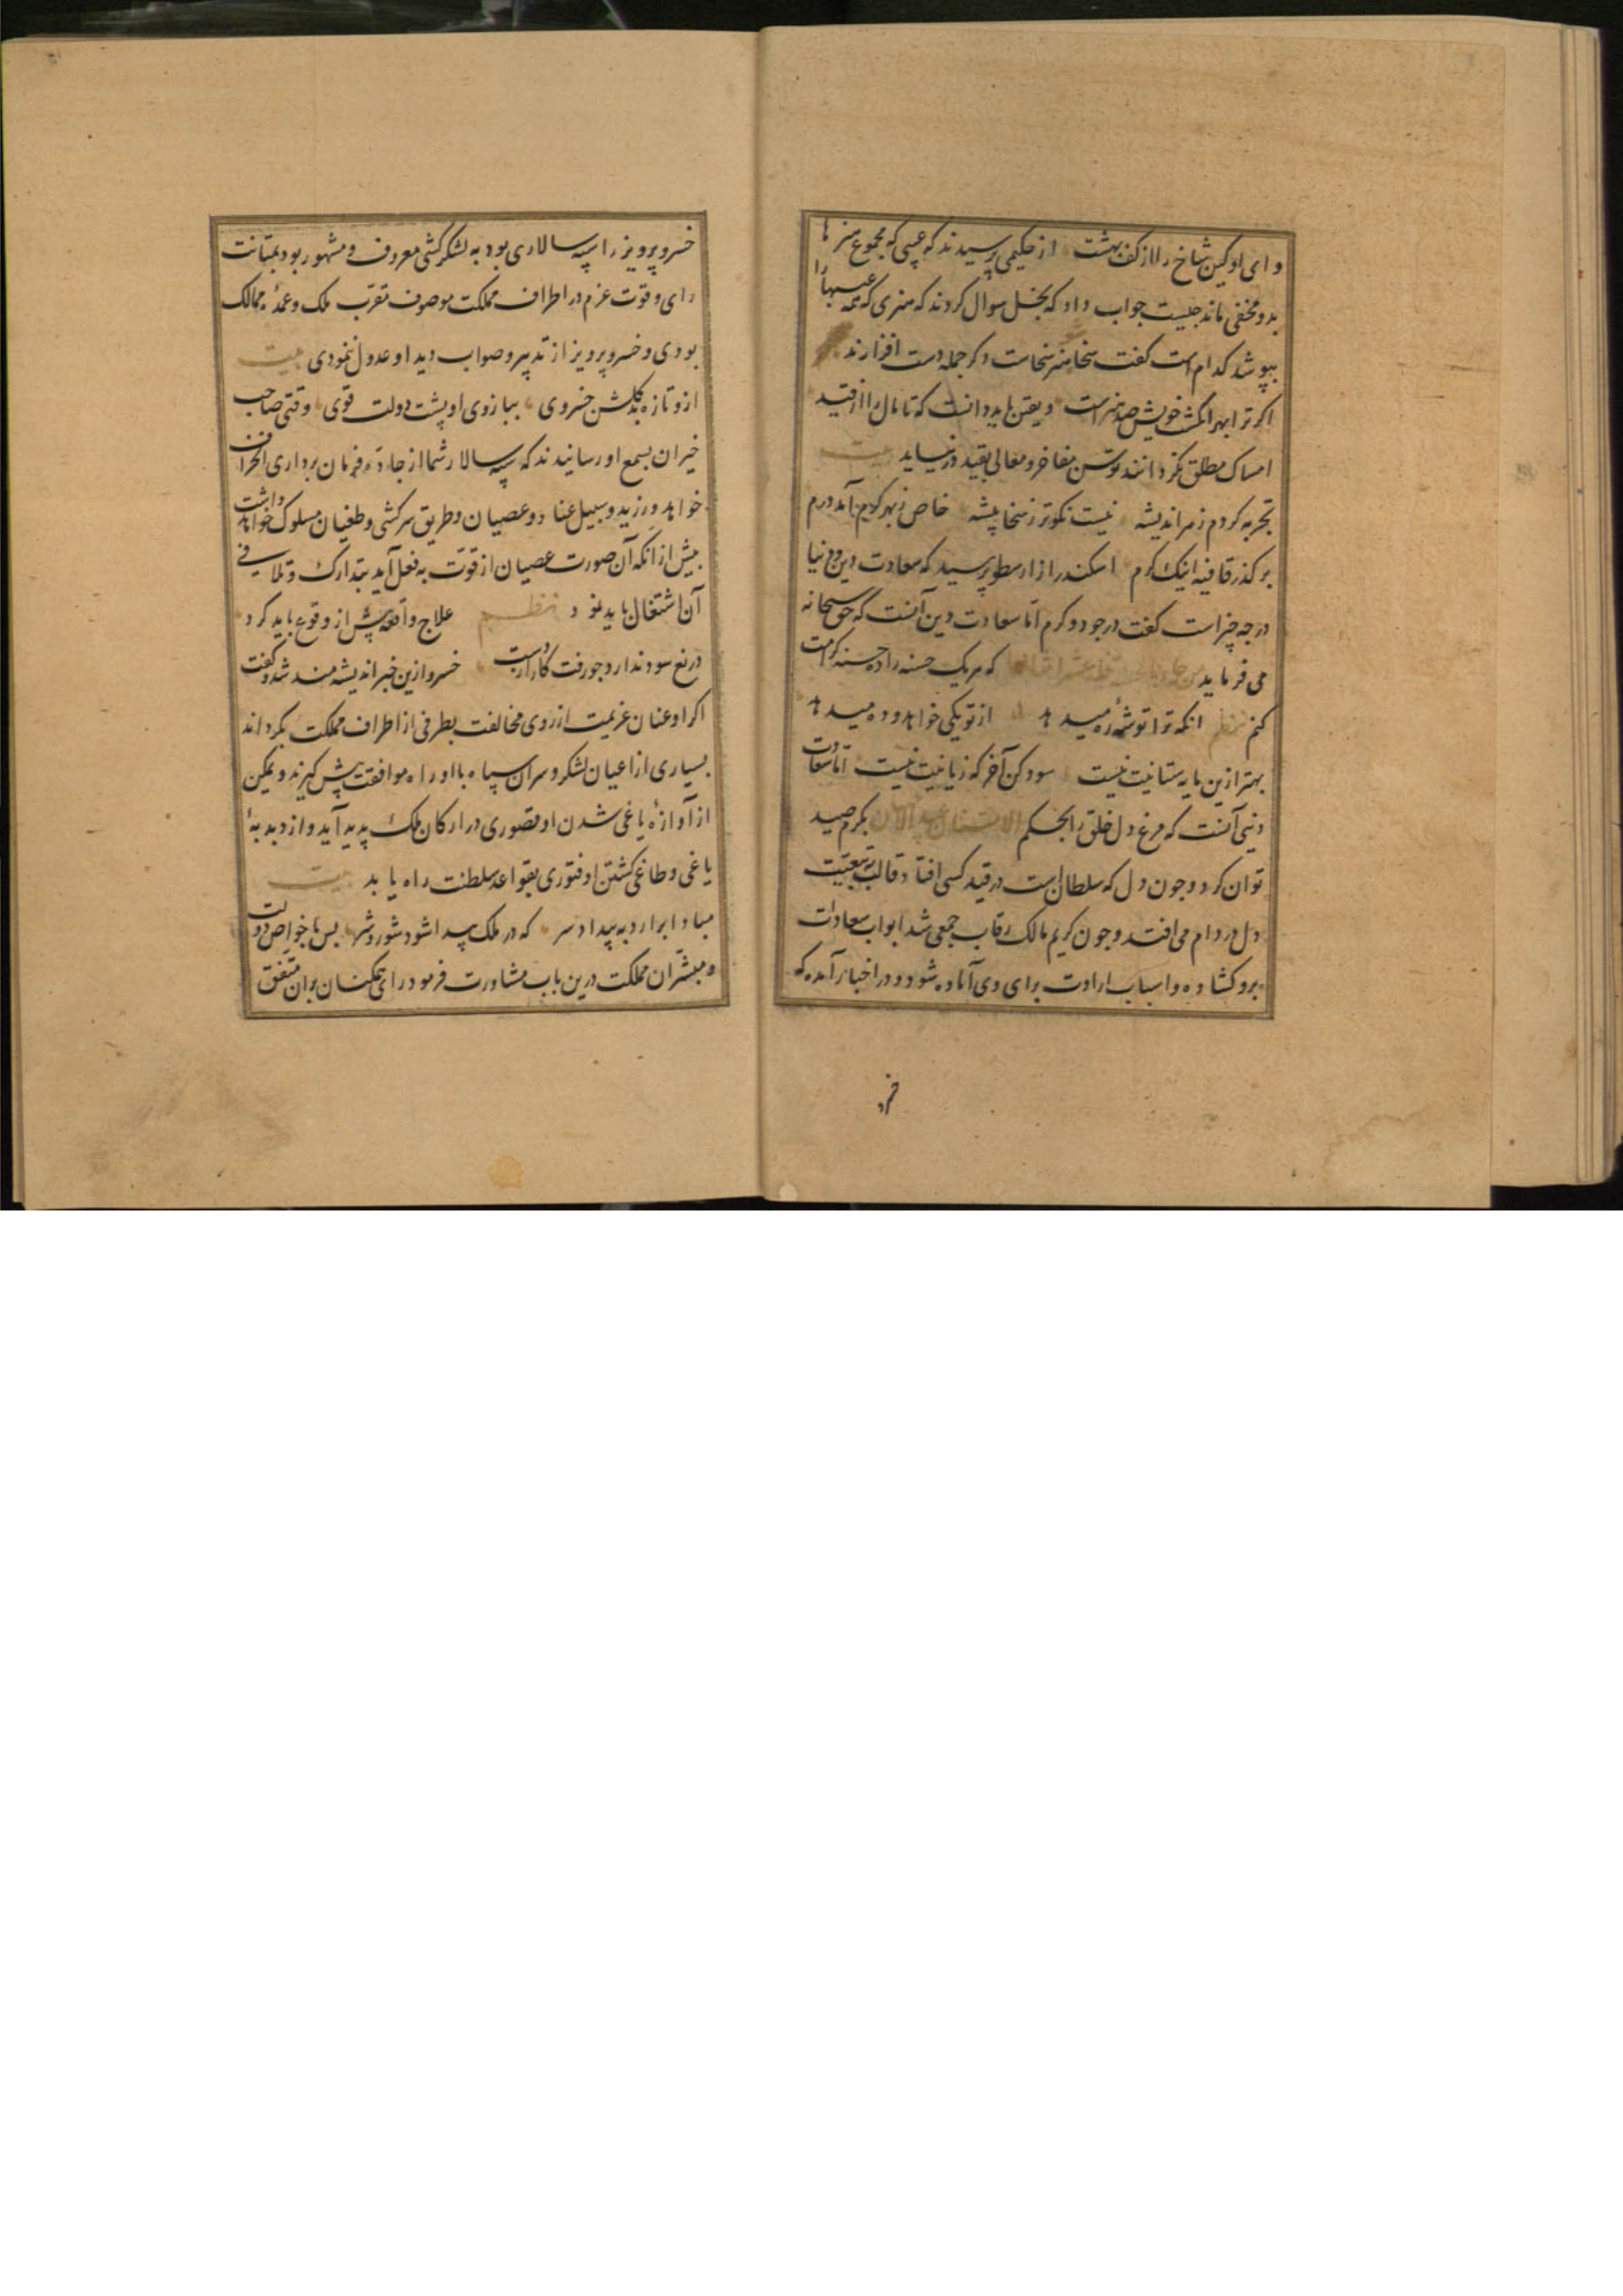 وای او کین شاخ را از کف بهشت از حکیمی پرسیدند که عیبی که مجموع هنرها
بدو مخفی ماند چیست جواب داد که بخل سوال کردند که هنری که همه عیبها را
بپوشد کدام است گفت سخا هنر سخاست دگر جمله دست افزارند
اگر ترا بهر انگشت خویش صد هنر است و یقین باید دانست که تا مال را از قید
امساک مطلق نگردانند توسن مفاخر و معالی بقید در نیاید بیت
تجربه کردم ز هر اندیشه نیست نکوتر ز سخا پیشه خاص ز بهر کرم آمد درم
بر گذر قافیه اینک کرم اسکندر از ارسطو پرسید که سعادت دین و دنیا
در چه چیز است گفت در جود و کرم اما سعادت دین آنست که حق سبحانه
می فرماید من جاء بالحسنة فله عشر امثالها که هر یک حسنه را ده حسنه کرامت
کنم نظم انکه ترا توشهٔ ره میدهد از تو یکی خواهد و ده میدهد
بهتر ازین مایه ستانیت نیست سود کن آخر که زیانیت نیست اما سعادت
دنیی آنست که مرغ دل خلق را بحکم الانسان عبید الاحسان بکرم صید
توان کرد و جون دل که سلطان است در قید کسی افتاد قالب به تبعیت
دل در دام می افتد و جون کریم مالک رقاب جمعی شد ابواب سعادات
برو کشاده و اسباب ارادت برای وی آماده شود و در اخبار آمده که
خسرو پرویز را سپه سالاری بود به لشکر کشی معروف و مشهور بود بمتانت
رای و قوت عزم در اطراف مملکت موصوف مقرب ملک و عمدهٔ ممالک
بودی و خسرو پرویز از تدبیر و صواب دید او عدول ننمودی بیت
ازو تازه بد گلشن خسروی ببازوی او پشت دولت قوی وقتی صاحب
خبران بسمع او رسانیدند که سپه سالار شما از جادهٔ فرمان برداری انحراف
خواهد ورزید و سبیل عناد و عصیان و طریق سرکشی و طغیان مسلوک خواهد داشت
پیش از انکه آن صورت عصیان از قوت به فعل آید بتدارک و تلافی
آن اشتغال باید نمود نظم علاج واقعه پیش از وقوع باید کرد
دریغ سود ندارد جو رفت کار از دست خسرو ازین خبر اندیشه مند شد و گفت
اگر او عنان عزیمت از روی مخالفت بطرفی از اطراف مملکت بگرداند
بسیاری از اعیان لشکر و سران سپاه با او راه موافقت پیش گیرند و یمکن
از آوازهٔ یاغی شدن او قصوری در ارکان ملک پدید آید و از دبدبهٔ
یاغی و طاغی گشتن او فتوری بقواعد سلطنت راه یابد بیت
مبادا برارد به بیداد سر که در ملک پیدا شود شور و شر پس با خواص دولت
و مبشران مملکت درین باب مشاورت فرمود رای همگنان بران متفق